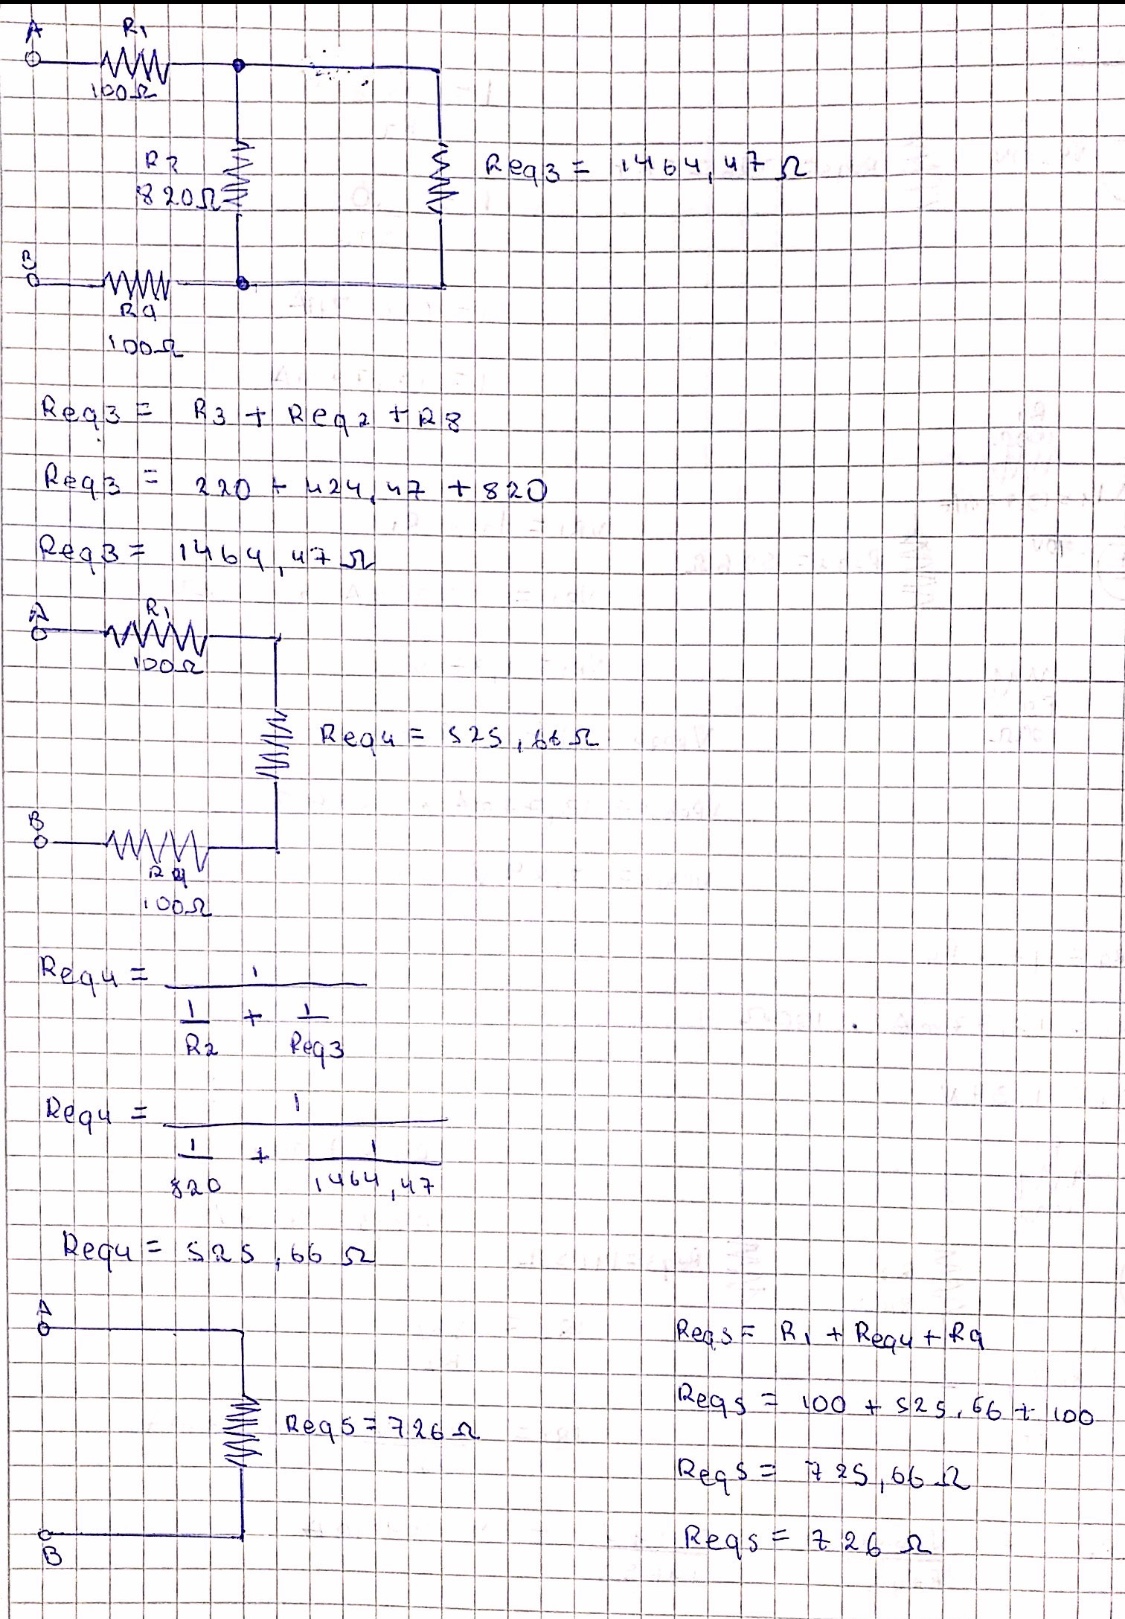 A R1
100Ω
R2
820Ω
Req3 = 1464,47 Ω
B
R9
100Ω
Req3 = R3 + Req2 + R8
Req3 = 220 + 424,47 + 820
Req3 = 1464,47 Ω
A R1
100Ω
Req4 = 525,66 Ω
B
R9
100Ω
Req4 = 1
1 + 1
R2 Req3
Req4 = 1
1 + 1
820 1464,47
Req4 = 525,66 Ω
A
Req5 = 726 Ω
B
Req5 = R1 + Req4 + R9
Req5 = 100 + 525,66 + 100
Req5 = 725,66 Ω
Req5 = 726 Ω